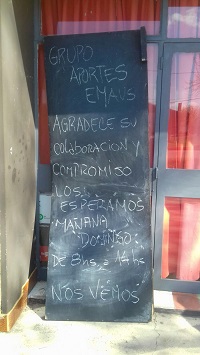 GRUPO
APORTES
EMAUS
AGRADECE SU
COLABORACION Y
COMPROMISO
LOS
ESPERAMOS
MAÑANA
DOMINGO
DE 8hs a 14hs
NOS VEMOS